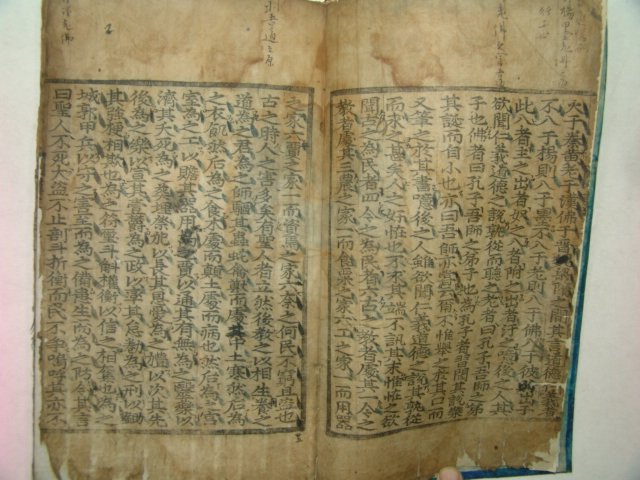 火于秦黃老于漢佛于晉魏梁隋之間其言道德仁義者
不入于楊則入于墨不入于老則入于佛入于彼必出于
此入者主之出者奴之入者附之出者汙之噫後之人其
欲聞仁義道德之說孰從而聽之老者曰孔子吾師之弟
子也佛者曰孔子吾師之弟子也為孔子者習聞其說樂
其誕而自小也亦曰吾師亦嘗師之云爾不惟舉之於其口而
又筆之於其書噫後之人雖欲聞仁義道德之說其孰從
而求之甚矣人之好怪也不求其端不訊其末惟怪之欲
聞古之為民者四今之為民者六古之教者處其一今之
教者處其三農之家一而食粟之家六工之家一而用器
之家六賈之家一而資焉之家六奈之何民不窮且盜也
古之時人之害多矣有聖人者立然後教之以相生養之
道為之君為之師驅其蟲蛇禽獸而處其中土寒然後為
之衣飢然後為之食木處而顛土處而病也然後為之宮
室為之工以贍其器用為之賈以通其有無為之醫藥以
濟其夭死為之葬埋祭祀以長其恩愛為之禮以次其先
後為之樂以宣其壹鬱為之政以率其怠勌為之刑以鋤
其强梗相欺也為之符璽斗斛權衡以信之相奪也為之
城郭甲兵以守之害至而為之備患生而為之防今其言
曰聖人不死大盜不止剖斗折衡而民不爭嗚呼其亦不